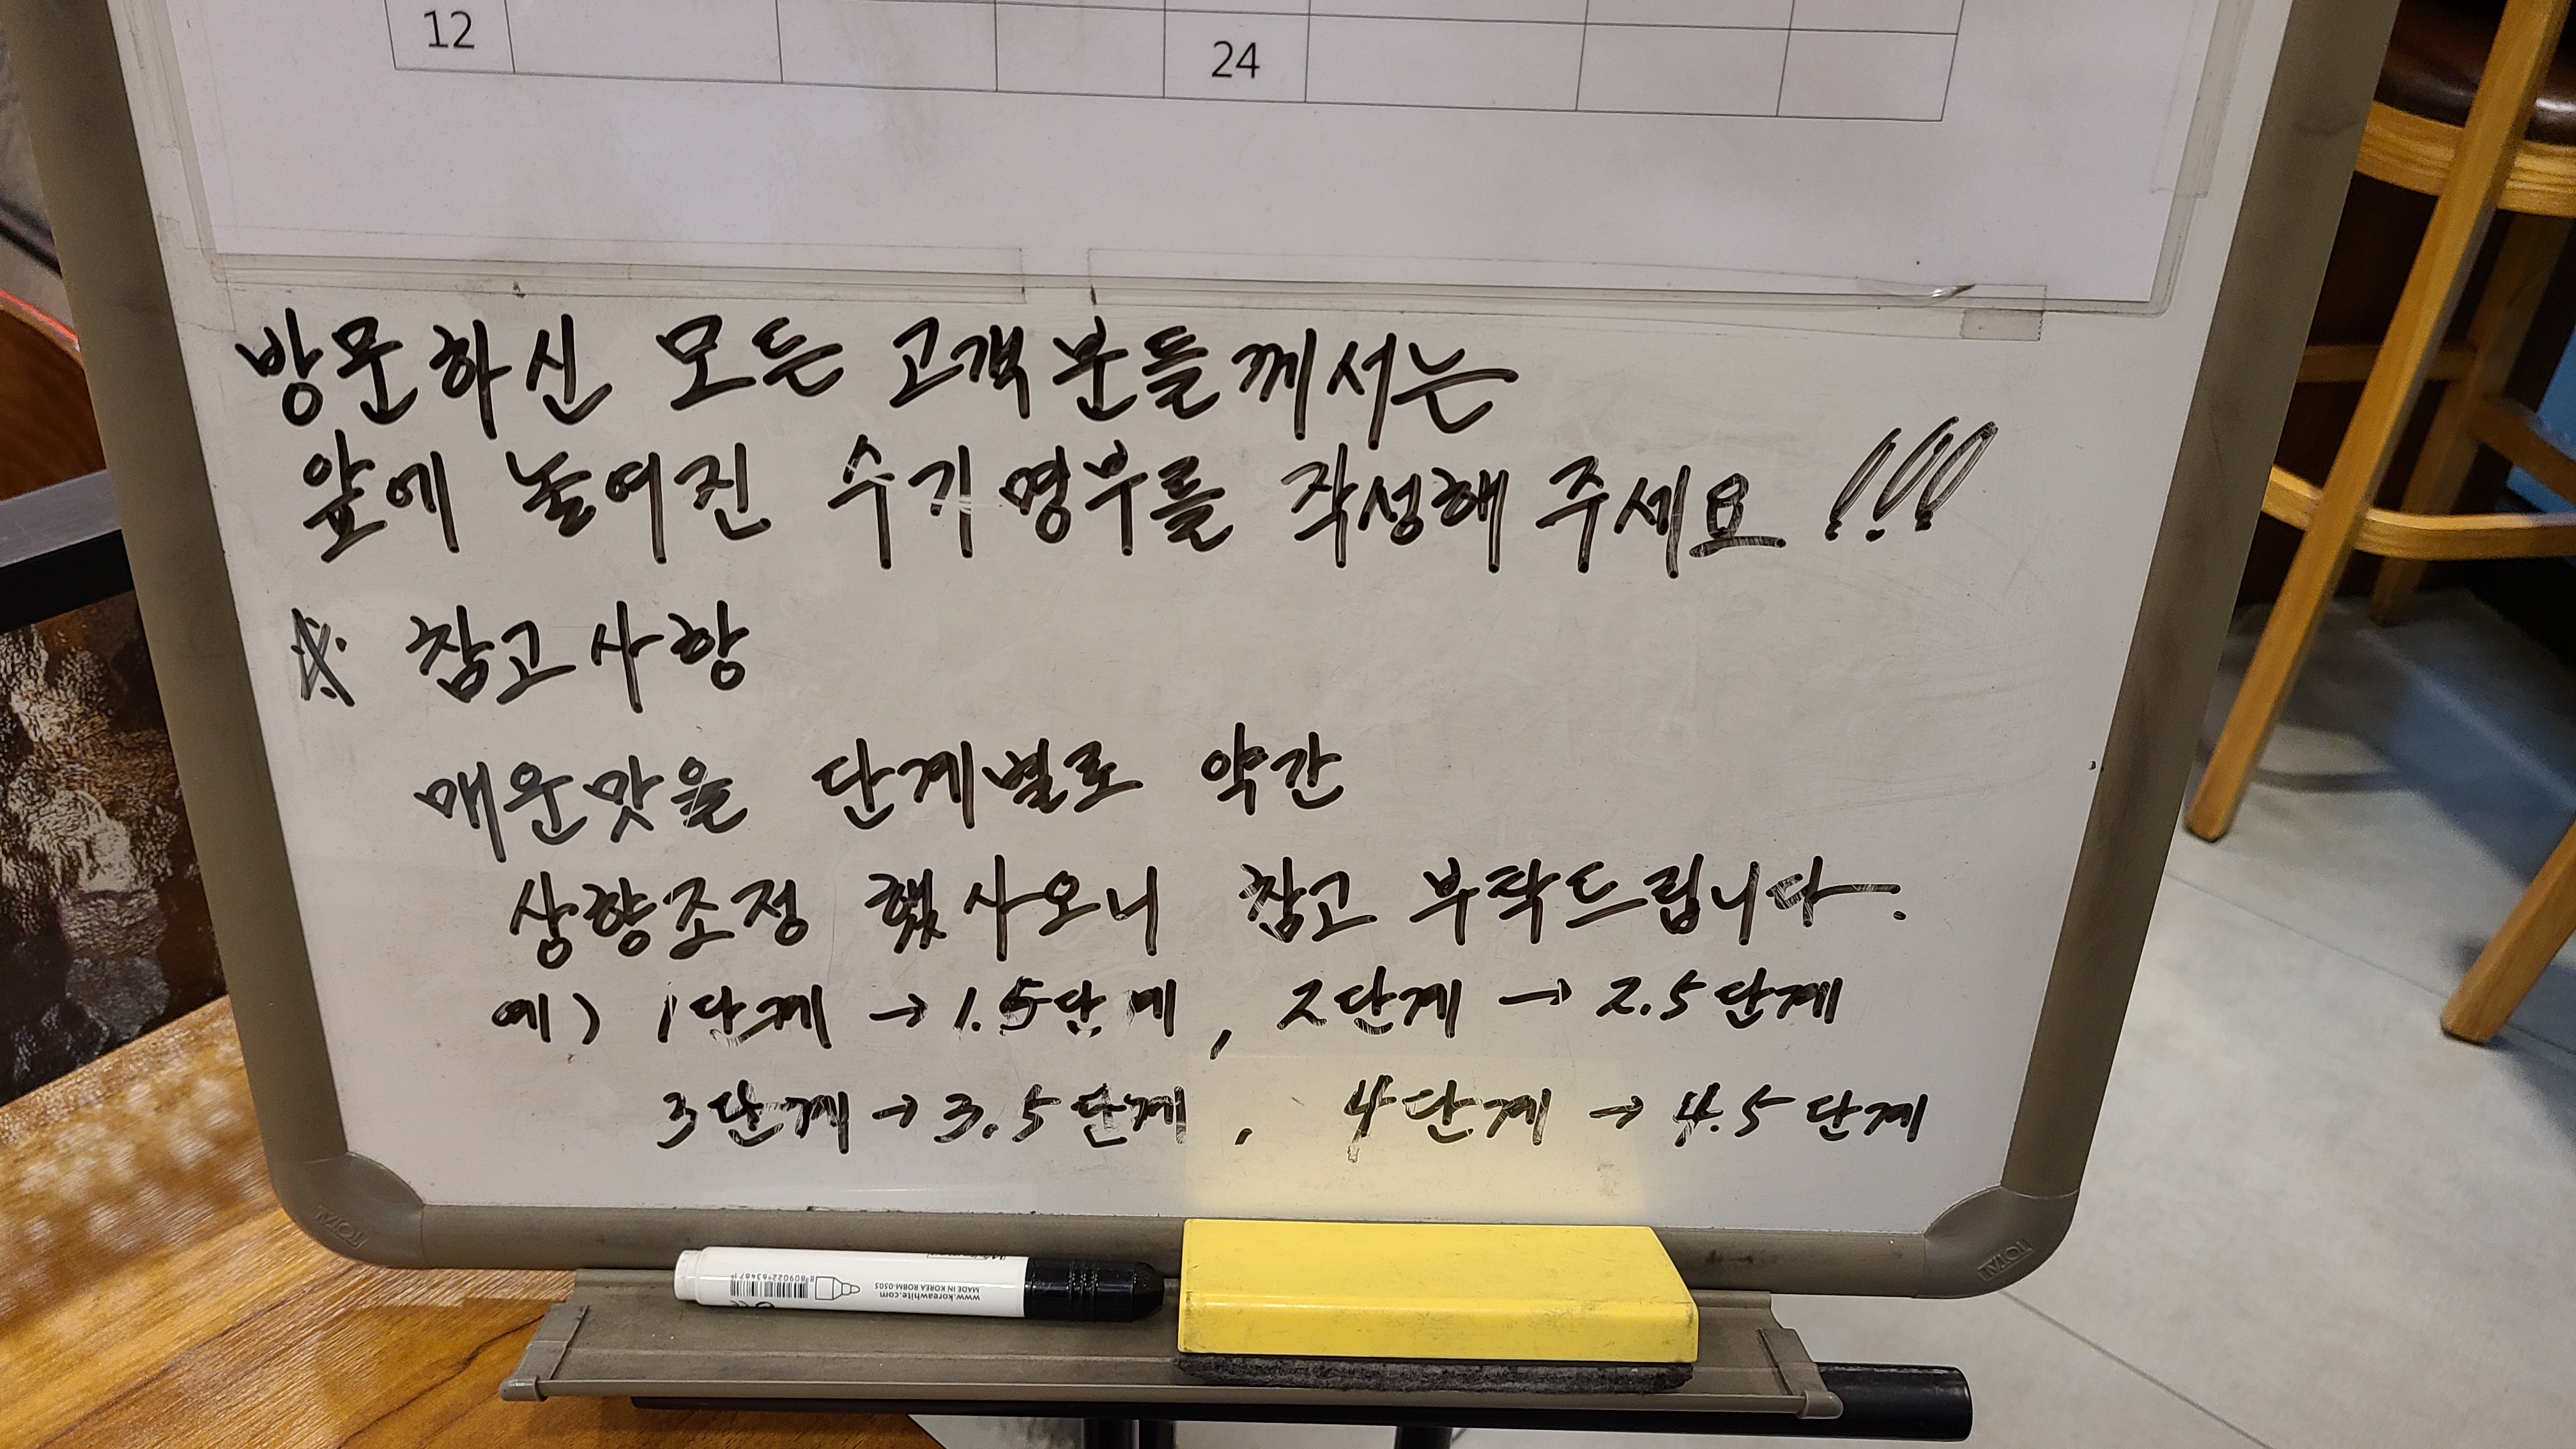 12 24
방문하신 모든 고객분들께서는
앞에 놓여진 수기명부를 작성해 주세요 !!!
☆ 참고사항
매운맛을 단계별로 약간
상향조정 했사오니 참고 부탁드립니다.
예) 1단계 → 1.5단계, 2단계 → 2.5단계
3단계 → 3.5단계, 4단계 → 4.5단계
TOTAL TOTAL
www.koreawhite.com
MADE IN KOREA ROBM-0505